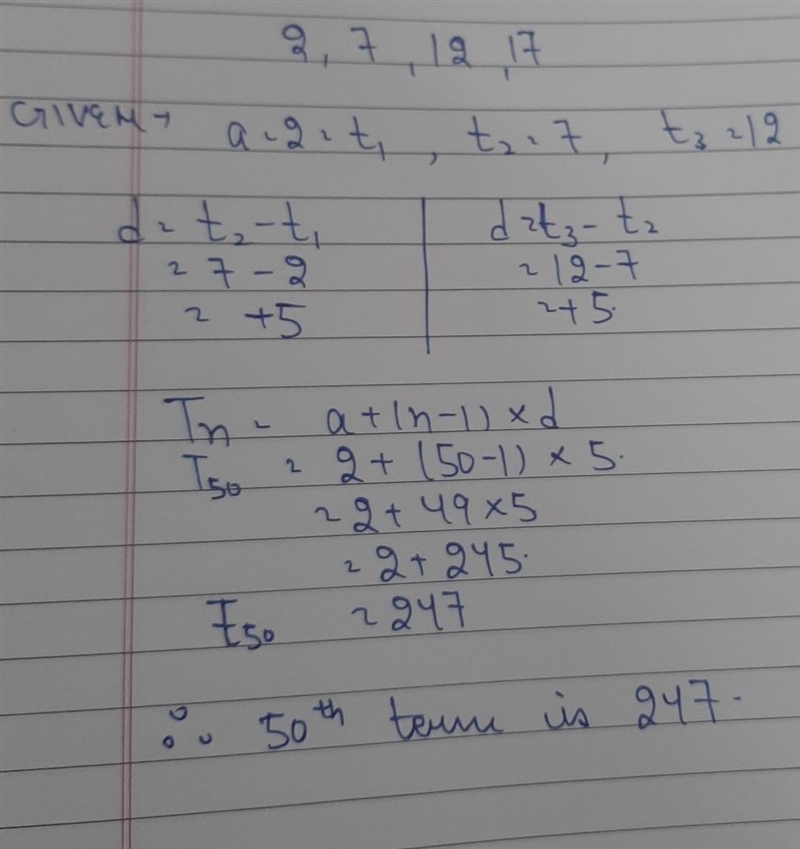 2, 7, 12, 17
GIVEN → a = 2 = t₁, t₂ = 7, t₃ = 12
d = t₂ - t₁ | d = t₃ - t₂
= 7 - 2 | = 12 - 7
= +5 | = +5.
Tn = a + (n-1) × d
T₅₀ = 2 + (50-1) × 5.
= 2 + 49 × 5
= 2 + 245.
t₅₀ = 247
∴ 50th term is 247.